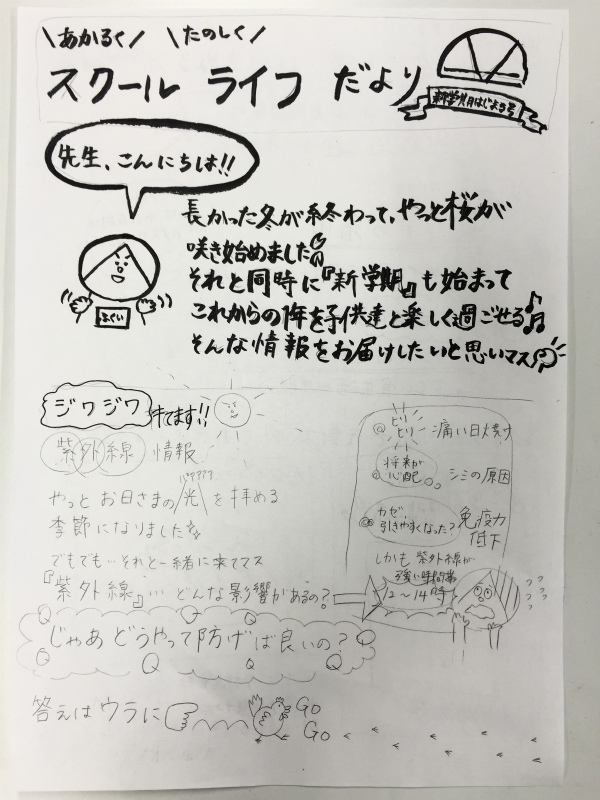 \あかるく/ \たのしく/
スクール ライフ だより
新学期はじまる号
先生、こんにちは!!
ふくい
長かった冬が終わって、やっと桜が
咲き始めました
それと同時に『新学期』も始まって
これからの1年を子供達と楽しく過ごせる♪♫
そんな情報をお届けしたいと思いマス
ジワジワ
来てます!!
紫外線 情報
やっとお日さまの光を拝める
パァァァァ
季節になりました
でもでも…それと一緒に来てマス
『紫外線』… どんな影響があるの?
ヒリ
ヒリ
痛い日焼け
将来が
心配
シミの原因
カゼ、
引きやすくなった?
免疫力
低下
しかも 紫外線が
強い時間帯
12〜14時
じゃあ どうやって防げば良いの?
答えはウラに
GO
GO